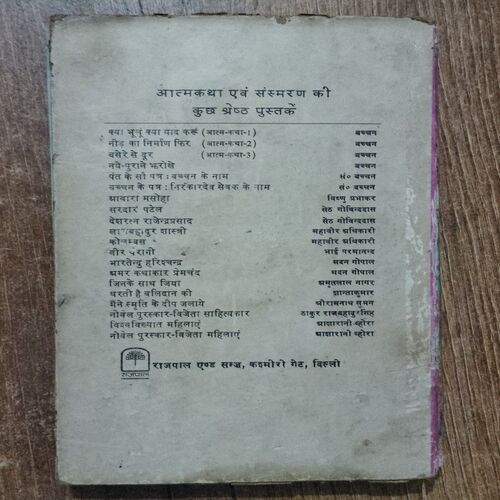 आत्मकथा एवं संस्मरण की
कुछ श्रेष्ठ पुस्तकें
क्या भूलूं क्या याद करूं (आत्म-कथा-1) बच्चन
नीड़ का निर्माण फिर (आत्म-कथा-2) बच्चन
बसेरे से दूर (आत्म-कथा-3) बच्चन
नये-पुराने झरोखे बच्चन
पंत के सौ पत्र : बच्चन के नाम सं० बच्चन
बच्चन के पत्र : निरंकारदेव सेवक के नाम सं० बच्चन
आवारा मसीहा विष्णु प्रभाकर
सरदार पटेल सेठ गोविन्ददास
देशरत्न राजेन्द्रप्रसाद सेठ गोविन्ददास
लालबहादुर शास्त्री महावीर अधिकारी
कोलम्बस महावीर अधिकारी
वीर भाई परमानन्द
भारतेन्दु हरिश्चन्द्र मदन गोपाल
अमर कथाकार प्रेमचंद मदन गोपाल
जिनके साथ जिया अमृतलाल नागर
धरती है बलिदान की शान्ताकुमार
मैंने स्मृति के दीप जलाये श्रीरामनाथ सुमन
नोबेल पुरस्कार-विजेता साहित्यकार ठाकुर राजबहादुर सिंह
विश्वविख्यात महिलाएं आशारानी व्होरा
नोबेल पुरस्कार-विजेता महिलाएं आशारानी व्होरा
राजपाल एण्ड सन्ज़, कश्मीरी गेट, दिल्ली
राजपाल